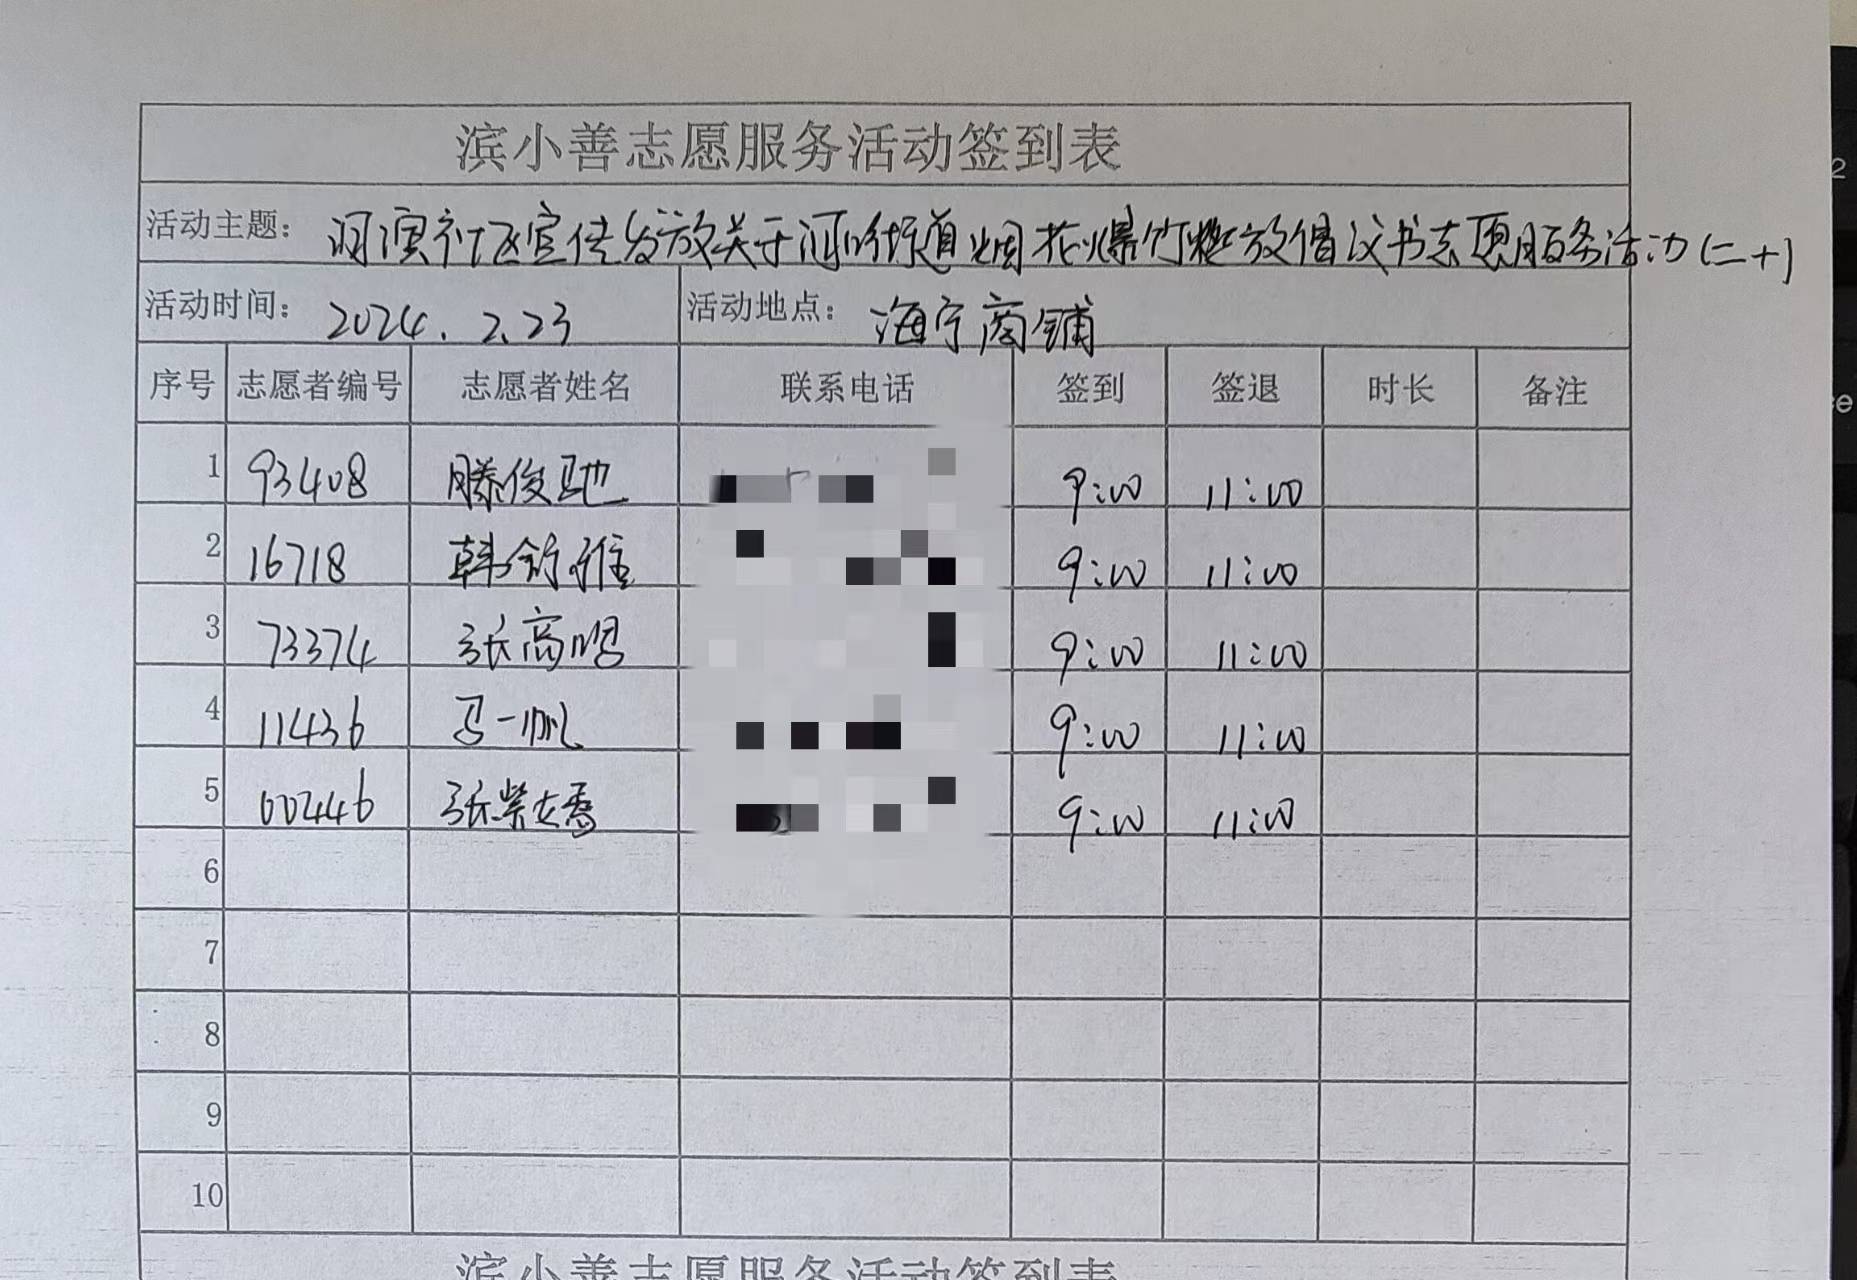 滨小善志愿服务活动签到表
活动主题： 社区宣传发放关于河街道烟花爆竹燃放倡议书志愿服务活动(二十)
活动时间： 2024.2.23 活动地点： 海宁商铺
序号 志愿者编号 志愿者姓名 联系电话 签到 签退 时长 备注
1 93408 滕俊驰 9:00 11:00
2 16718 韩舒雅 9:00 11:00
3 73374 张高 9:00 11:00
4 11436 一帆 9:00 11:00
5 00446 张紫 9:00 11:00
6
7
8
9
10
滨小善志愿服务活动签到表